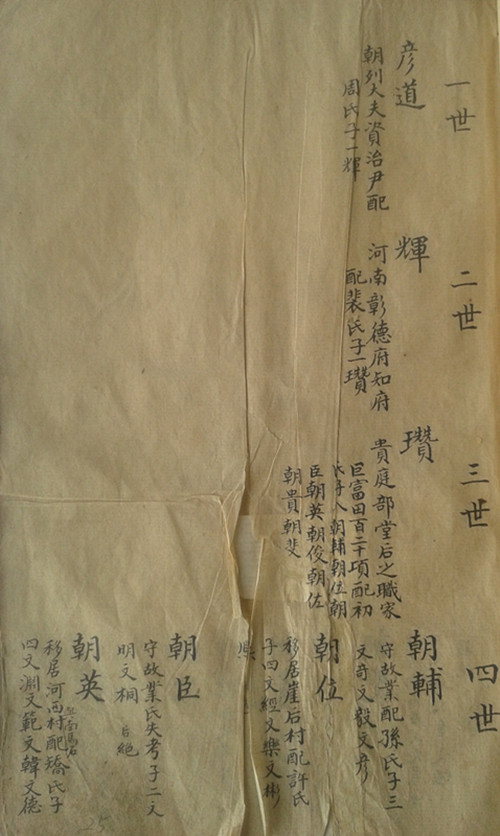 一世
彦道
朝列大夫資治尹配
周氏子一輝
二世
輝
河南彰德府知府
配裴氏子一瓚
三世
瓚
貴庭部堂后之職家
巨富田百二十項配初
氏子八朝輔朝位朝
臣朝英朝俊朝佐
朝貴朝斐
四世
朝輔
守故業配孫氏子三
文奇文毅文彦
朝位
移居崖后村配許氏
子四文經文樂文彬
朝臣
守故業氏失考子二文
明文桐 后絕
朝英
移居河西村配矯氏子
四文淵文範文韓文德
25